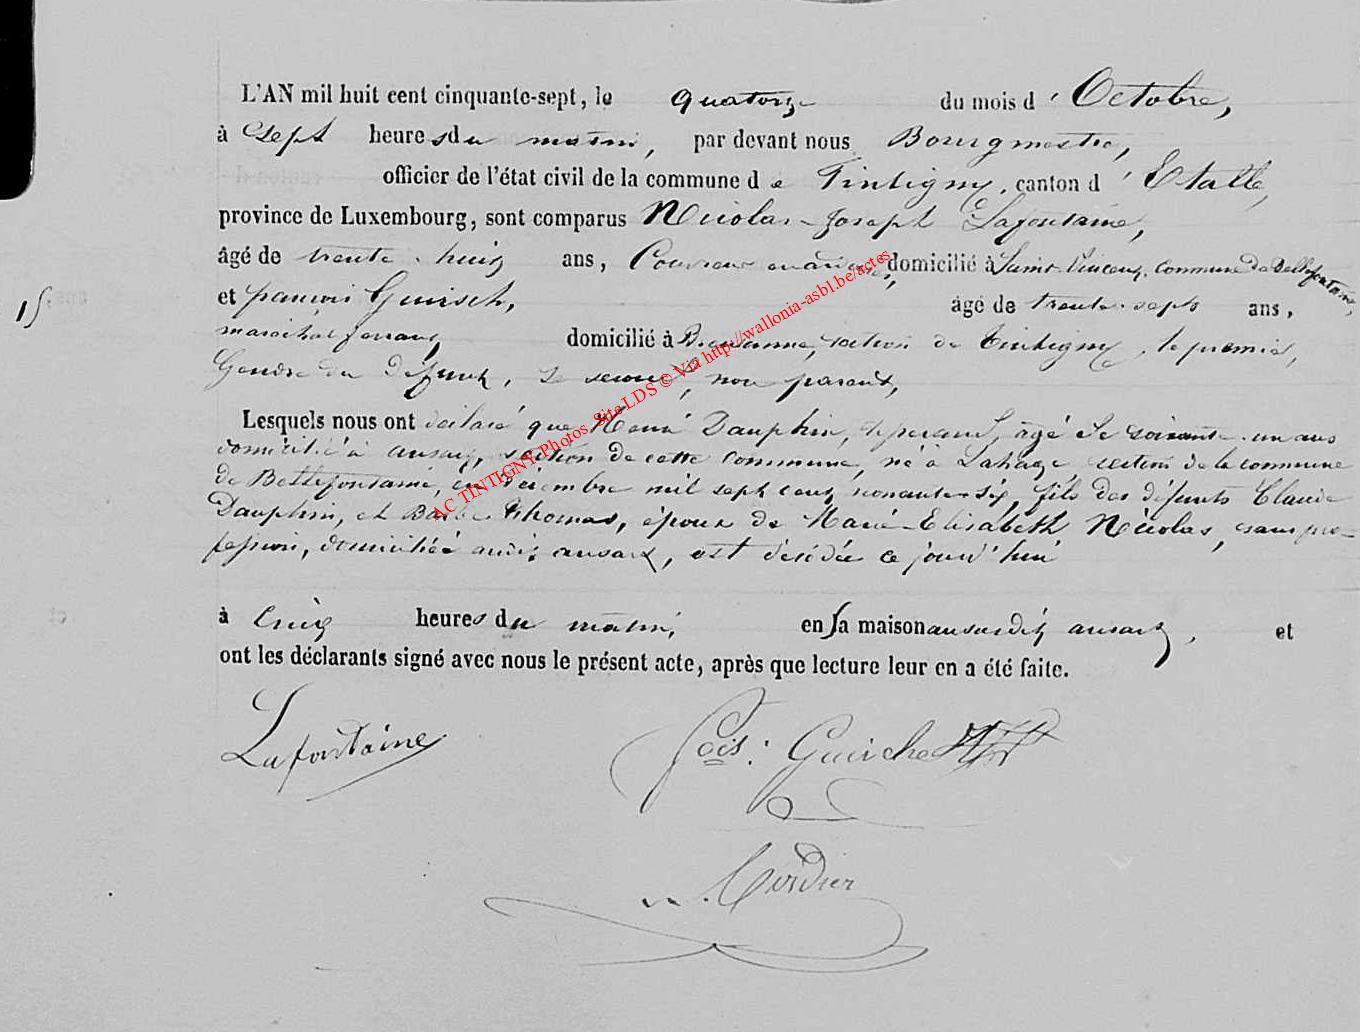 L'AN mil huit cent cinquante-sept, le quatorze du mois d' Octobre,
à Sept heures du matin, par devant nous Bourgmestre,
officier de l'état civil de la commune de Tintigny, canton d' Etalle,
province de Luxembourg, sont comparus Nicolas-Joseph Lafontaine,
âgé de trente-huit ans, Couvreur en ardoises, domicilié à Saint-Vincent, commune de Bellefontaine,
15
et françois Guirsch, âgé de trente-sept ans,
maréchal ferrant, domicilié à Breuvanne, section de Tintigny, le premier,
Gendre du défunt, Le second, non parent,
Lesquels nous ont déclaré que Henri Dauphin, âgé de soixante-un ans
domicilié à ansart, section de cette commune, né à Lahage section de la commune
de Bellefontaine, en décembre mil sept cent nonante-six, fils des défunts Claude
Dauphin, et Barbe Thomas, époux de Marie-Elisabeth Nicolas, sans pro-
fession, domiciliée audit ansart, est décédé ce jourd'hui
à Cinq heures du matin, en sa maison au susdit ansart, et
ont les déclarants signé avec nous le présent acte, après que lecture leur en a été faite.
Lafontaine
fcois: Guirche
Cordier
AC TINTIGNY Photos Site LDS © Via http://wallonia-asbl.be/actes